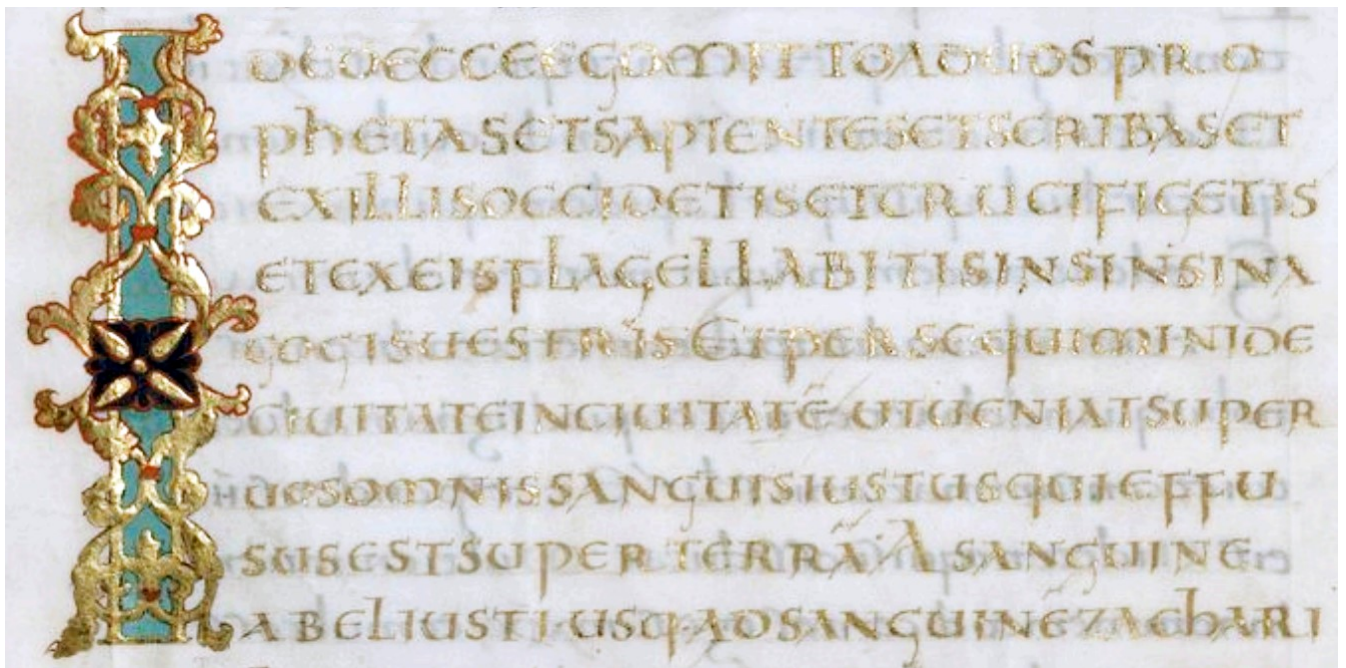 IDEOECCEEGOMITTOADUOSPRO
PHETASETSAPIENTESETSCRIBASET
EXILLISOCCIDETISETCRUCIFIGETIS
ETEXEISFLAGELLABITISINSINSINA
GOGISUESTRISETPERSEQUIMINIDE
CIUITATEINCIUITATĒUTUENIATSUPER
UOSOMNISSANGUISIUSTUSQUIEFFU
SUSESTSUPERTERRĀASANGUINE
ABELIUSTIUSQ·ADSANGUINĒZACHARI